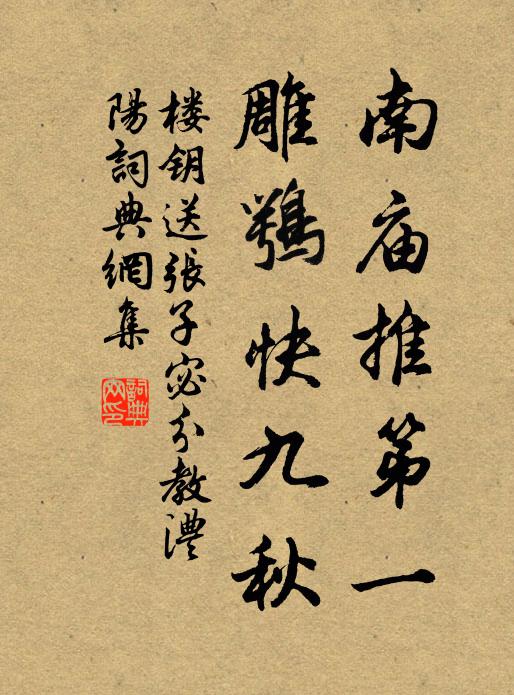 南庙推第一
雕鶚快九秋
楼钥送張子宓分教澧
陽詞典網集
詞典
网印